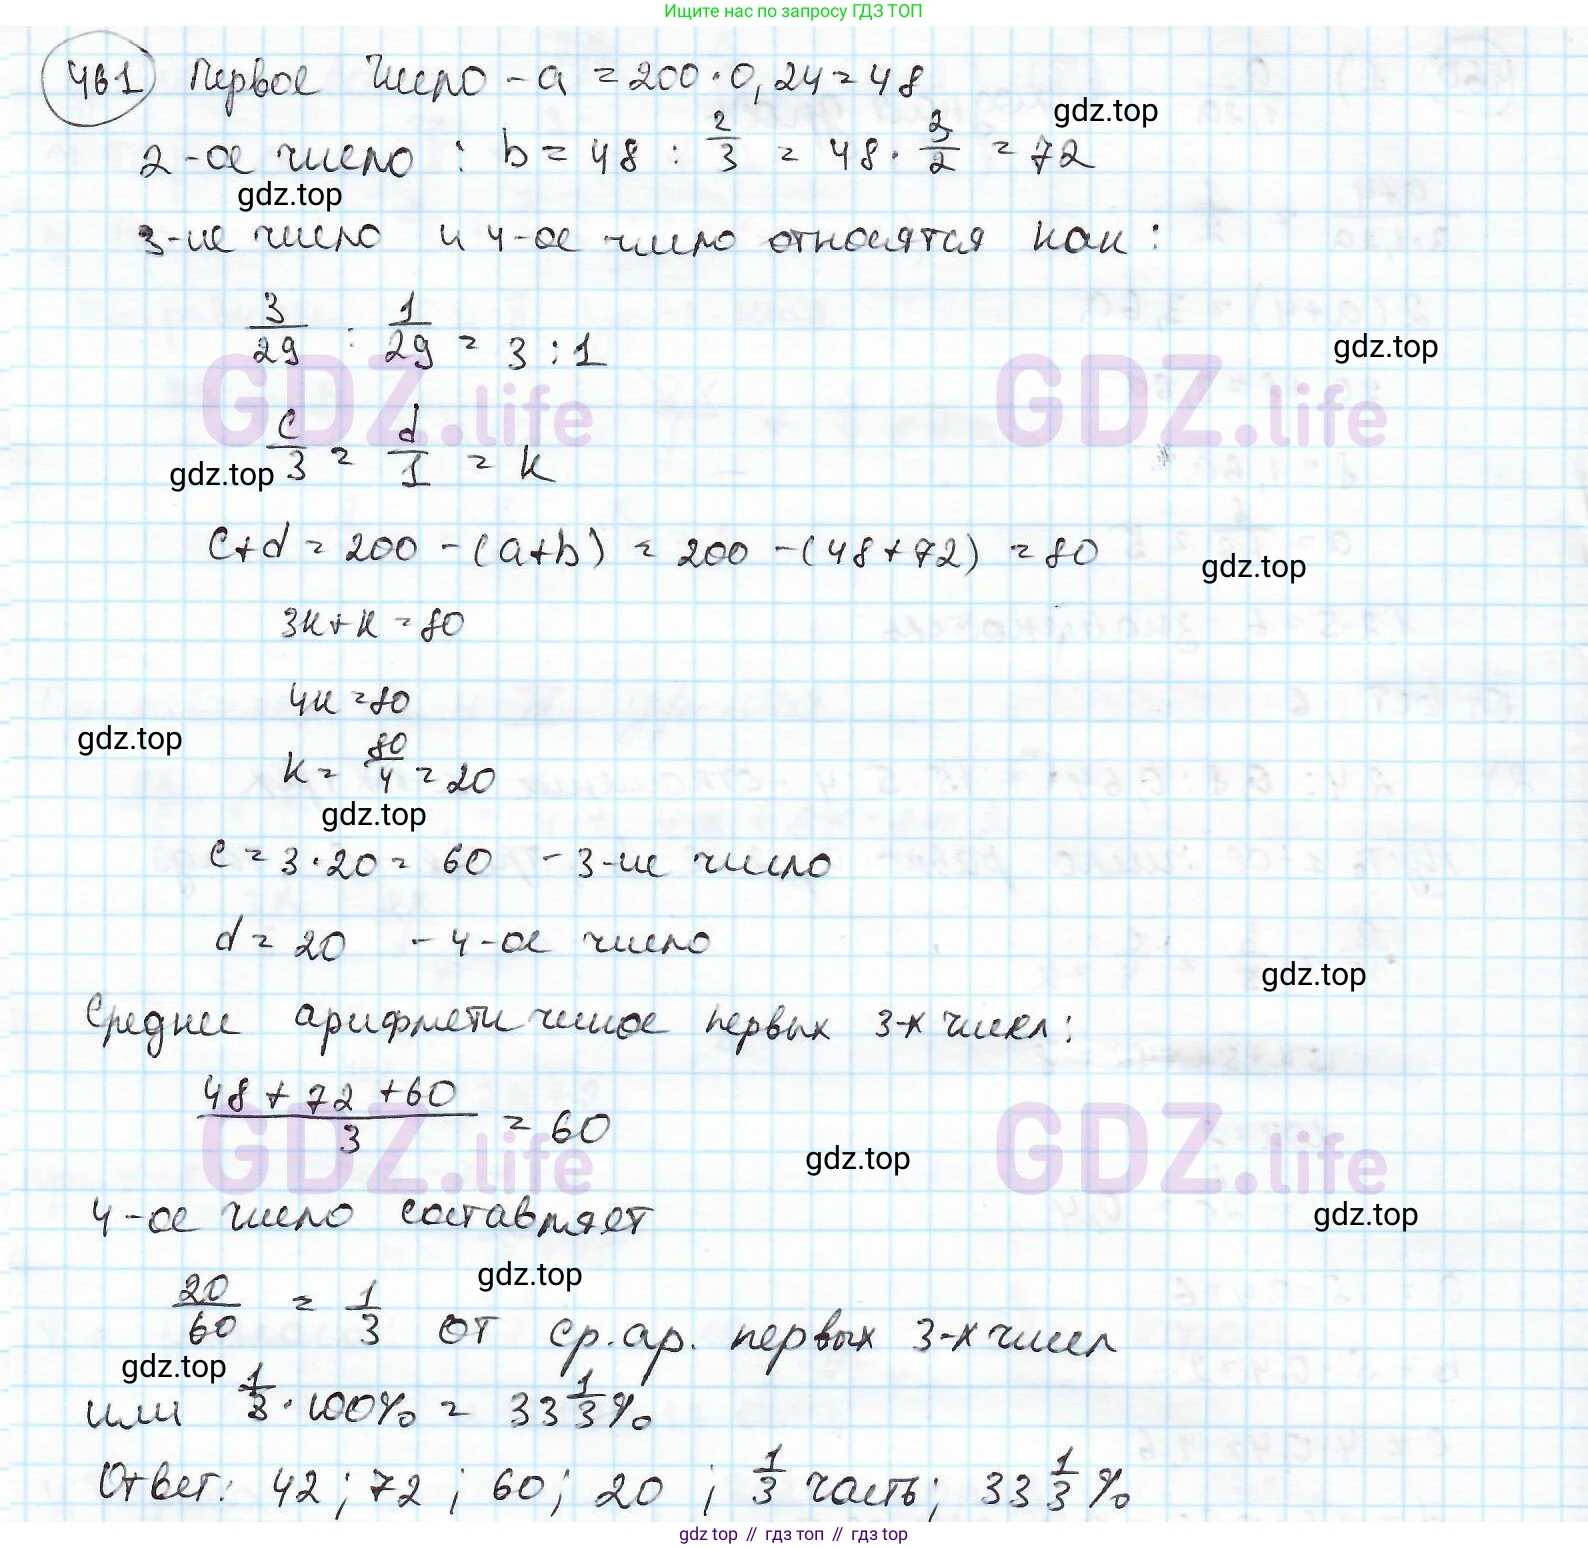 Ищите нас по запросу ГДЗ ТОП
461 Первое число - a = 200 · 0,24 = 48
gdz.top
2-ое число : b = 48 : 2/3 = 48 · 3/2 = 72
gdz.top
3-ие число и 4-ое число относятся как :
3/29 : 1/29 = 3 : 1
gdz.top
GDZ.life GDZ.life
c/3 = d/1 = k
gdz.top
c+d = 200 - (a+b) = 200 - (48+72) = 80
gdz.top
3k+k = 80
4k = 80
gdz.top
k = 80/4 = 20
gdz.top
c = 3 · 20 = 60 - 3-ие число
d = 20 - 4-ое число
gdz.top
Среднее арифметическое первых 3-х чисел:
48 + 72 + 60 / 3 = 60
GDZ.life GDZ.life
gdz.top
4-ое число составляет
gdz.top
gdz.top
20/60 = 1/3 от ср. ар. первых 3-х чисел
gdz.top
или 1/3 · 100% = 33 1/3 %
Ответ: 42 ; 72 ; 60 ; 20 ; 1/3 часть; 33 1/3 %
gdz top // гдз топ // гдз top